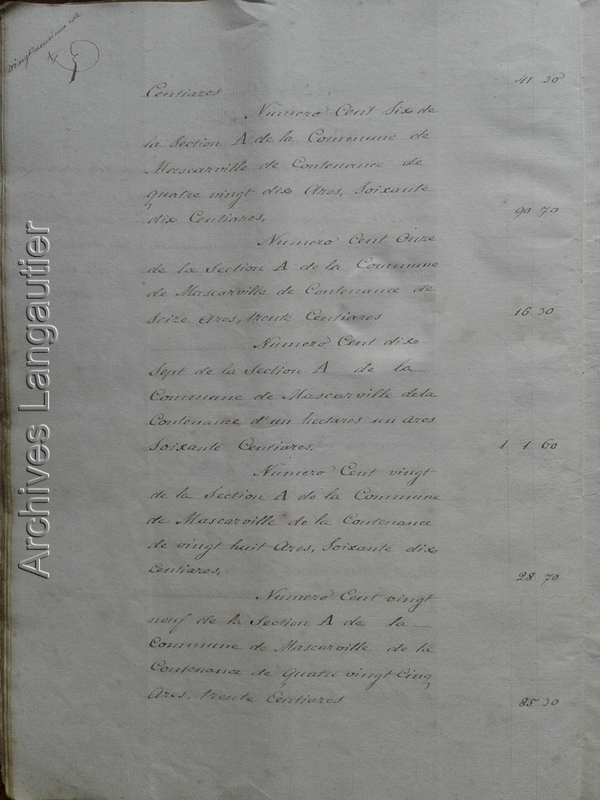 vingtneuvieme
Centiares 41 30
Numero Cent Six de
la Section A de la Commune de
Mascarville de Contenance de
quatre vingt dix Ares, Soixante
dix Centiares, 90 70
Numero Cent Onze
de la Section A de la Commune
de Mascarville de Contenance de
Seize Ares, trente Centiares 16 30
Numero Cent dix
Sept de la Section A de la
Commune de Mascarville dela
Contenance d'un hectares un ares
Soixante Centiares, 1 1 60
Numero Cent vingt
de la Section A de la Commune
de Mascarville de la Contenance
de vingt huit Ares, Soixante dix
Centiares, 28 70
Numero Cent vingt
neuf de la Section A de la
Commune de Mascarville de la
Contenance de Quatre vingt Cinq
Ares, trente Centiares 85 30
Archives Langautier